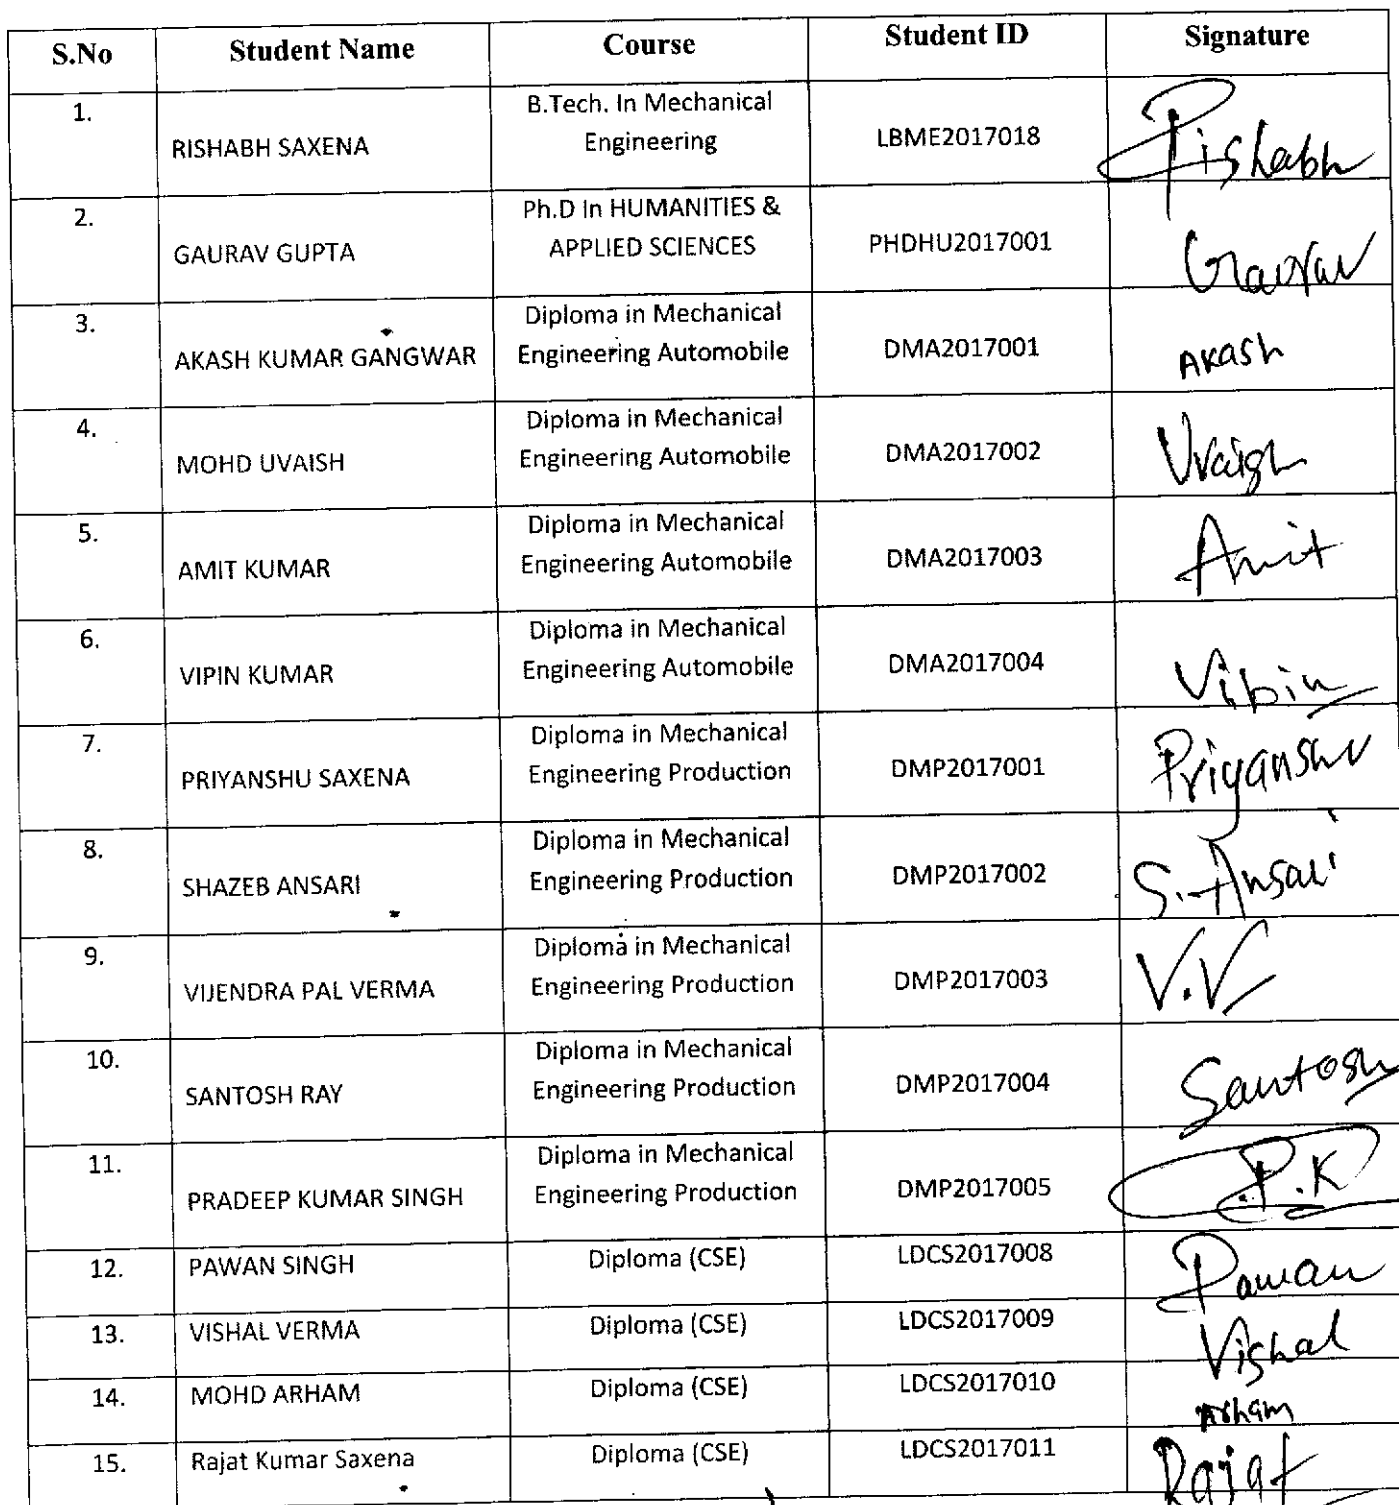 S.No Student Name Course Student ID Signature
1. RISHABH SAXENA B.Tech. In Mechanical
Engineering LBME2017018 Rishabh
2. GAURAV GUPTA Ph.D In HUMANITIES &
APPLIED SCIENCES PHDHU2017001 Gaurav
3. AKASH KUMAR GANGWAR Diploma in Mechanical
Engineering Automobile DMA2017001 AKash
4. MOHD UVAISH Diploma in Mechanical
Engineering Automobile DMA2017002 Uvaish
5. AMIT KUMAR Diploma in Mechanical
Engineering Automobile DMA2017003 Amit
6. VIPIN KUMAR Diploma in Mechanical
Engineering Automobile DMA2017004 Vipin
7. PRIYANSHU SAXENA Diploma in Mechanical
Engineering Production DMP2017001 Priyanshu
8. SHAZEB ANSARI Diploma in Mechanical
Engineering Production DMP2017002 S. Ansari
9. VIJENDRA PAL VERMA Diploma in Mechanical
Engineering Production DMP2017003 V.V
10. SANTOSH RAY Diploma in Mechanical
Engineering Production DMP2017004 Santosh
11. PRADEEP KUMAR SINGH Diploma in Mechanical
Engineering Production DMP2017005 P.K
12. PAWAN SINGH Diploma (CSE) LDCS2017008 Pawan
13. VISHAL VERMA Diploma (CSE) LDCS2017009 Vishal
14. MOHD ARHAM Diploma (CSE) LDCS2017010 Arham
15. Rajat Kumar Saxena Diploma (CSE) LDCS2017011 Rajat